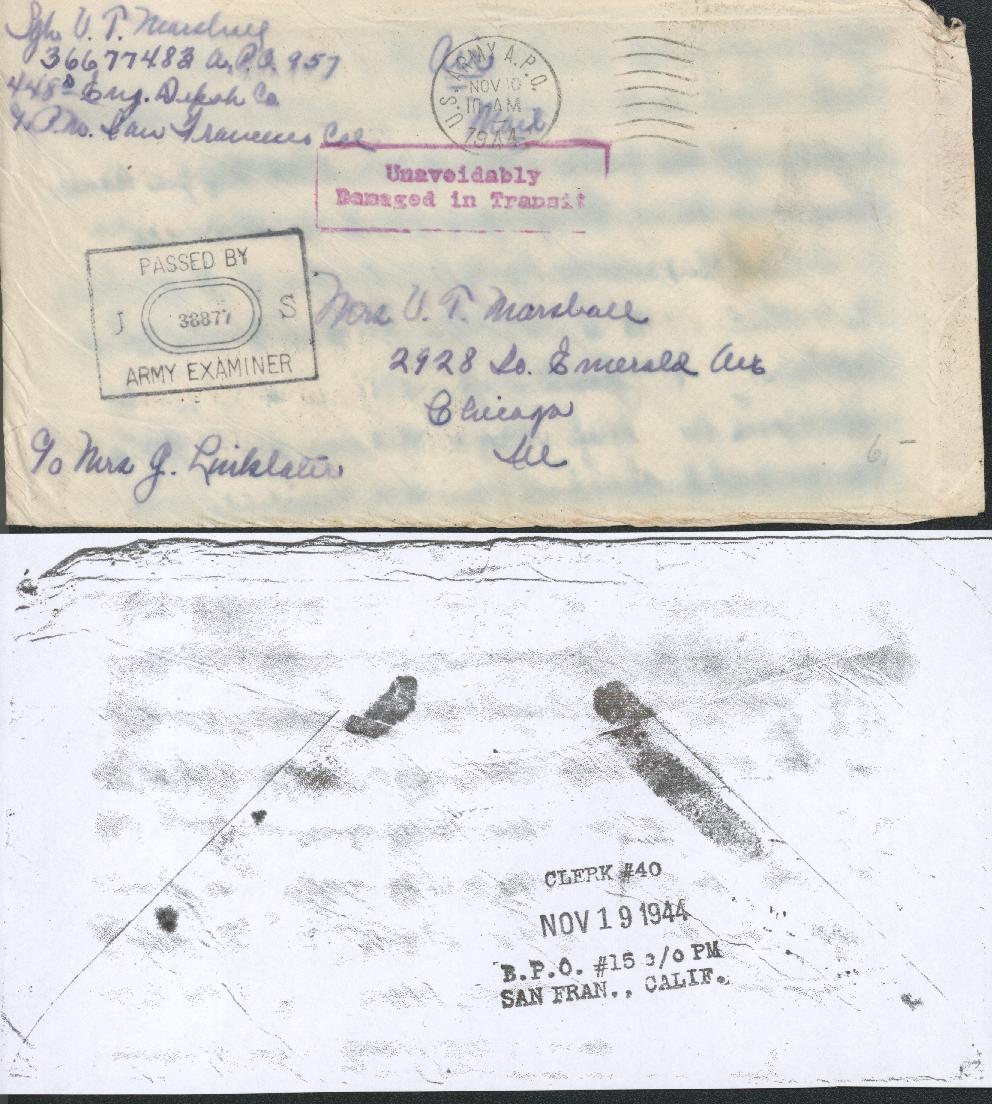 Sgt. V. T. Marshall
36677483 A.P.O. 957
448th Eng. Depot Co.
c/o P.M. San Francisco Cal
Air
Mail
U.S. ARMY A.P.O.
NOV 10
10-AM
Unavoidably
Damaged in Transit
PASSED BY
J 38877 S
ARMY EXAMINER
Mrs V. T. Marshall
2928 So. Emerald Ave
Chicago
Ill
c/o Mrs J. Linklater
6-
CLERK #40
NOV 19 1944
B.P.O. #15 c/o PM
SAN FRAN., CALIF.